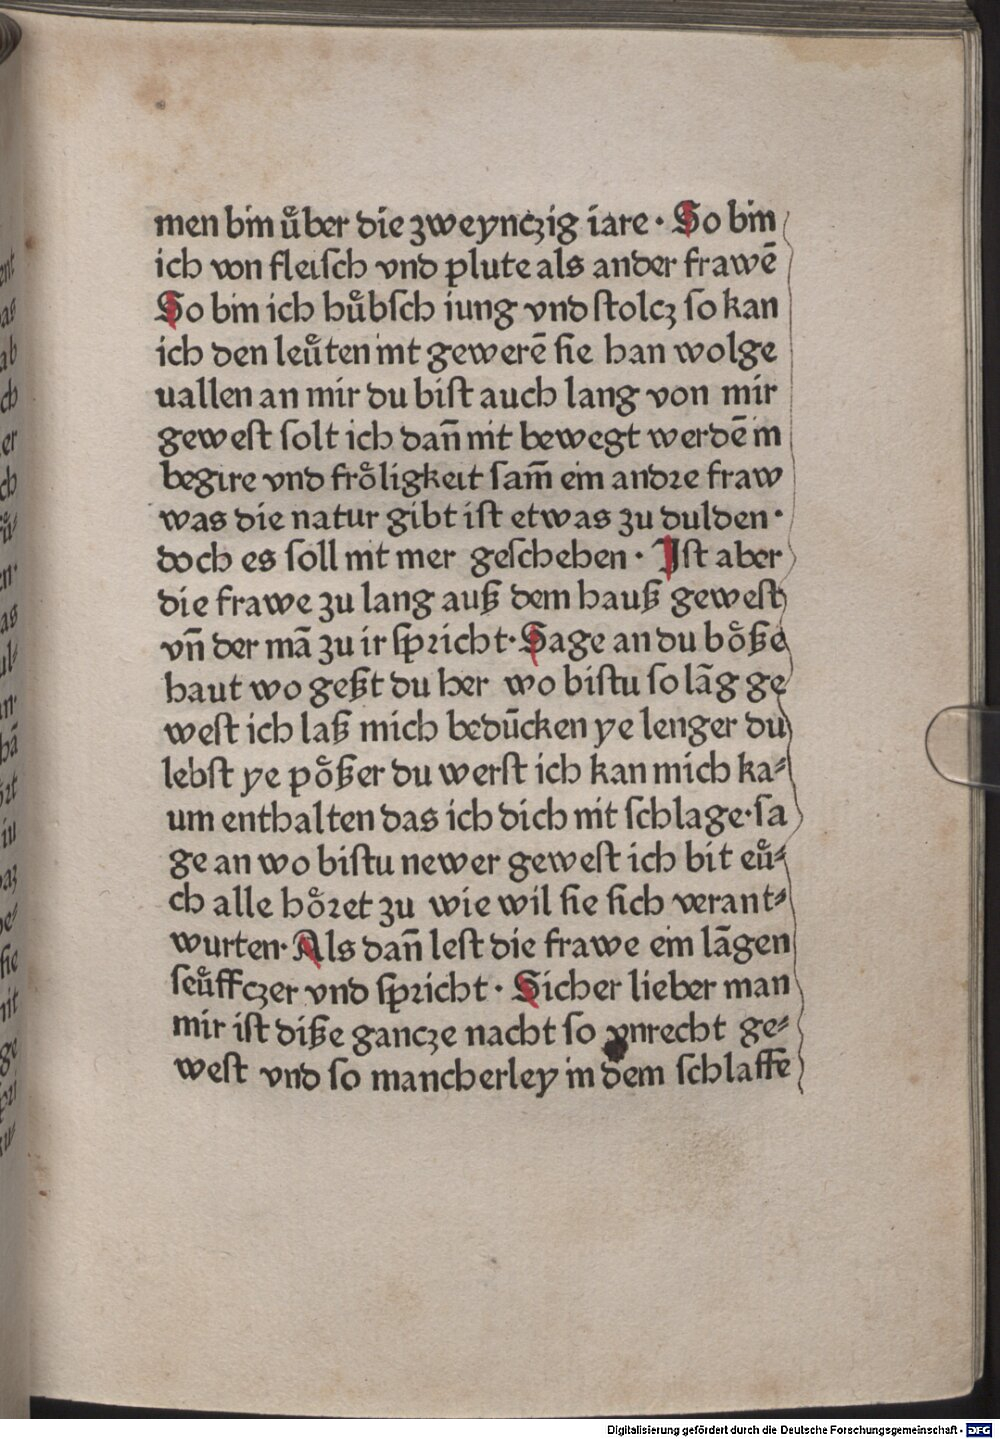 men bin uͤber die zweynczig iare · So bin
ich von fleisch vnd plute als ander frawē
So bin ich huͤbsch iung vnd stolcz so kan
ich den leuͤten nit gewerē sie han wolge
uallen an mir du bist auch lang von mir
gewest solt ich dañ nit bewegt werdē in
begire vnd froͤligkeit sam̄ ein andre fraw
was die natur gibt ist etwas zu dulden ·
doch es soll nit mer geschehen · Ist aber
die frawe zu lang auß dem hauß gewest
vñ der mā zu ir spricht · Sage an du boͤße
haut wo geßt du her wo bistu so lāg ge
west ich laß mich bedūcken ye lenger du
lebst ye poͤßer du werst ich kan mich ka⸗
um enthalten das ich dich nit schlage · sa
ge an wo bistu newer gewest ich bit euͤ⸗
ch alle hoͤret zu wie wil sie sich verant⸗
wurten · Als dañ lest die frawe ein lāgen
seuͤffczer vnd spricht · Sicher lieber man
mir ist diße gancze nacht so vnrecht ge⸗
west vnd so mancherley in dem schlaffe
Digitalisierung gefördert durch die Deutsche Forschungsgemeinschaft - DFG